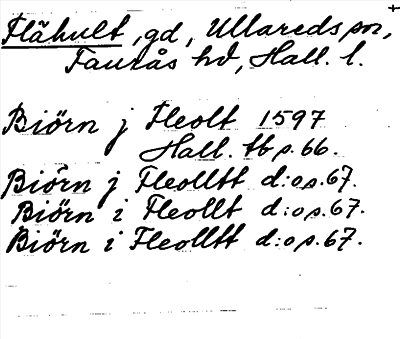 Flähult, gd, Ullareds sn,
Faurås hd, Hall. l.
Biörn j Fleolt 1597
Hall. tb s. 66.
Biörn j Fleolltt d:o s. 67.
Biörn i Fleollt d:o s. 67.
Biörn i Fleolltt d:o s. 67.